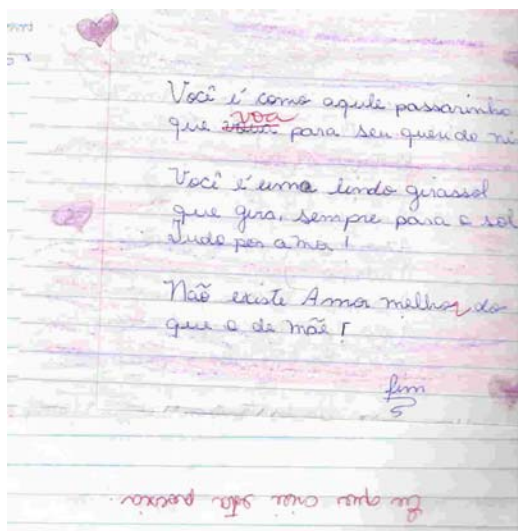 Você é como aquele passarinho
que voa para seu querido ni
Você é uma lindo girassol
que gira, sempre para o sol
Tudo por amor!
Não existe Amor melhor do
que o de mãe!
fim
Eu que criei esta poesia.